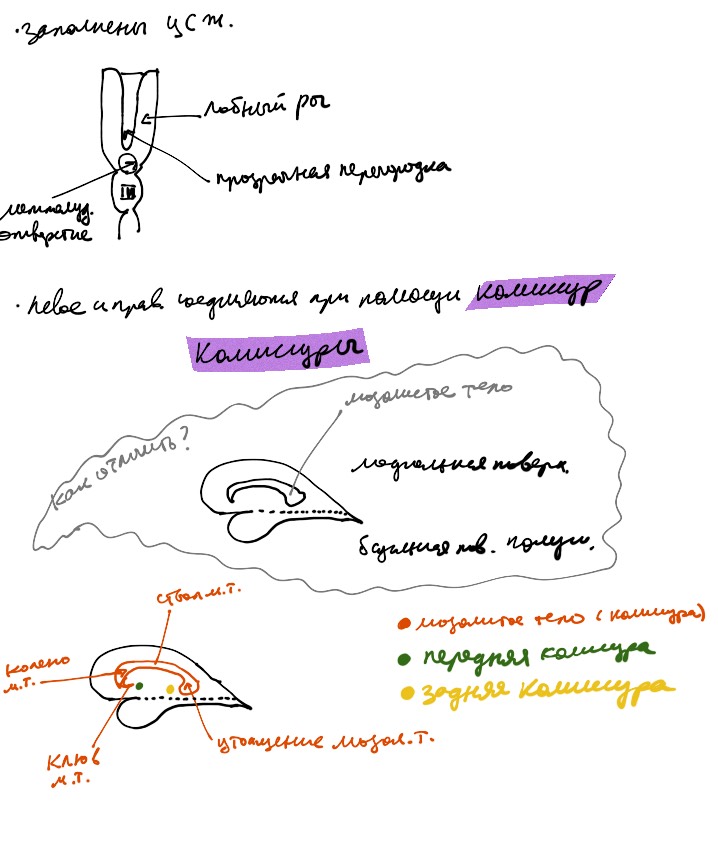 ·заполнены ЦСЖ.
лобный рог
прозрачная перегородка
межжелуд.
отверстие
III
· левое и прав соединяются при помощи комиссур
Комиссуры
мозолистое тело
как отличить?
медиальная поверх.
базальная пов. полуш.
ствол м.т.
колено
м.т.
мозолистое тело (комиссура)
передняя комиссура
задняя комиссура
утолщение мозол.т.
Клюв
м.т.